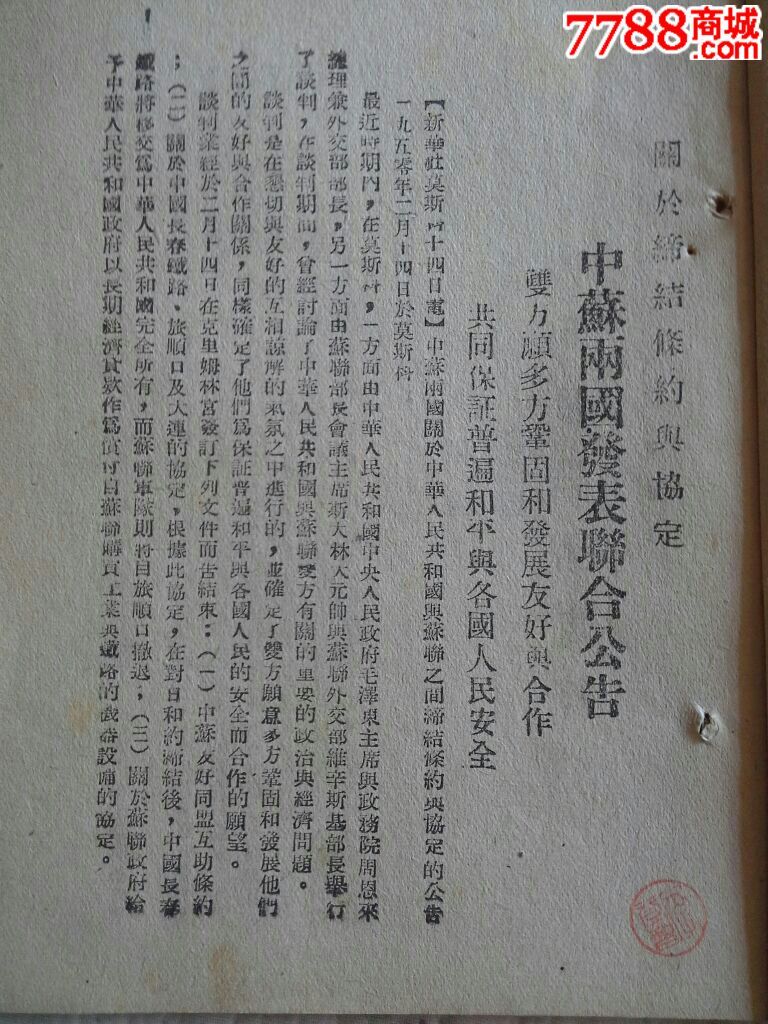 7788商城
.com
關於締結條約與協定
中蘇兩國發表聯合公告
雙方願多方鞏固和發展友好與合作
共同保証普遍和平與各國人民安全
【新華社莫斯科十四日電】中蘇兩國關於中華人民共和國與蘇聯之間締結條約與協定的公告
一九五零年二月十四日於莫斯科
最近時期內，在莫斯科，一方面由中華人民共和國中央人民政府毛澤東主席與政務院周恩來
總理兼外交部部長，另一方面由蘇聯部長會議主席斯大林大元帥與蘇聯外交部維辛斯基部長舉行
了談判，在談判期間，曾經討論了中華人民共和國與蘇聯雙方有關的重要的政治與經濟問題。
談判是在懇切與友好的互相諒解的氣氛之中進行的，並確定了雙方願意多方鞏固和發展他們
之間的友好與合作關係，同樣確定了他們為保証普遍和平與各國人民的安全而合作的願望。
談判業經於二月十四日在克里姆林宮簽訂下列文件而告結束：（一）中蘇友好同盟互助條約
；（二）關於中國長春鐵路、旅順口及大連的協定，根據此協定，在對日和約締結後，中國長春
鐵路將移交為中華人民共和國完全所有，而蘇聯軍隊則將自旅順口撤退；（三）關於蘇聯政府給
予中華人民共和國政府以長期經濟貸款作為償付自蘇聯購買工業與鐵路的機器設備的協定。